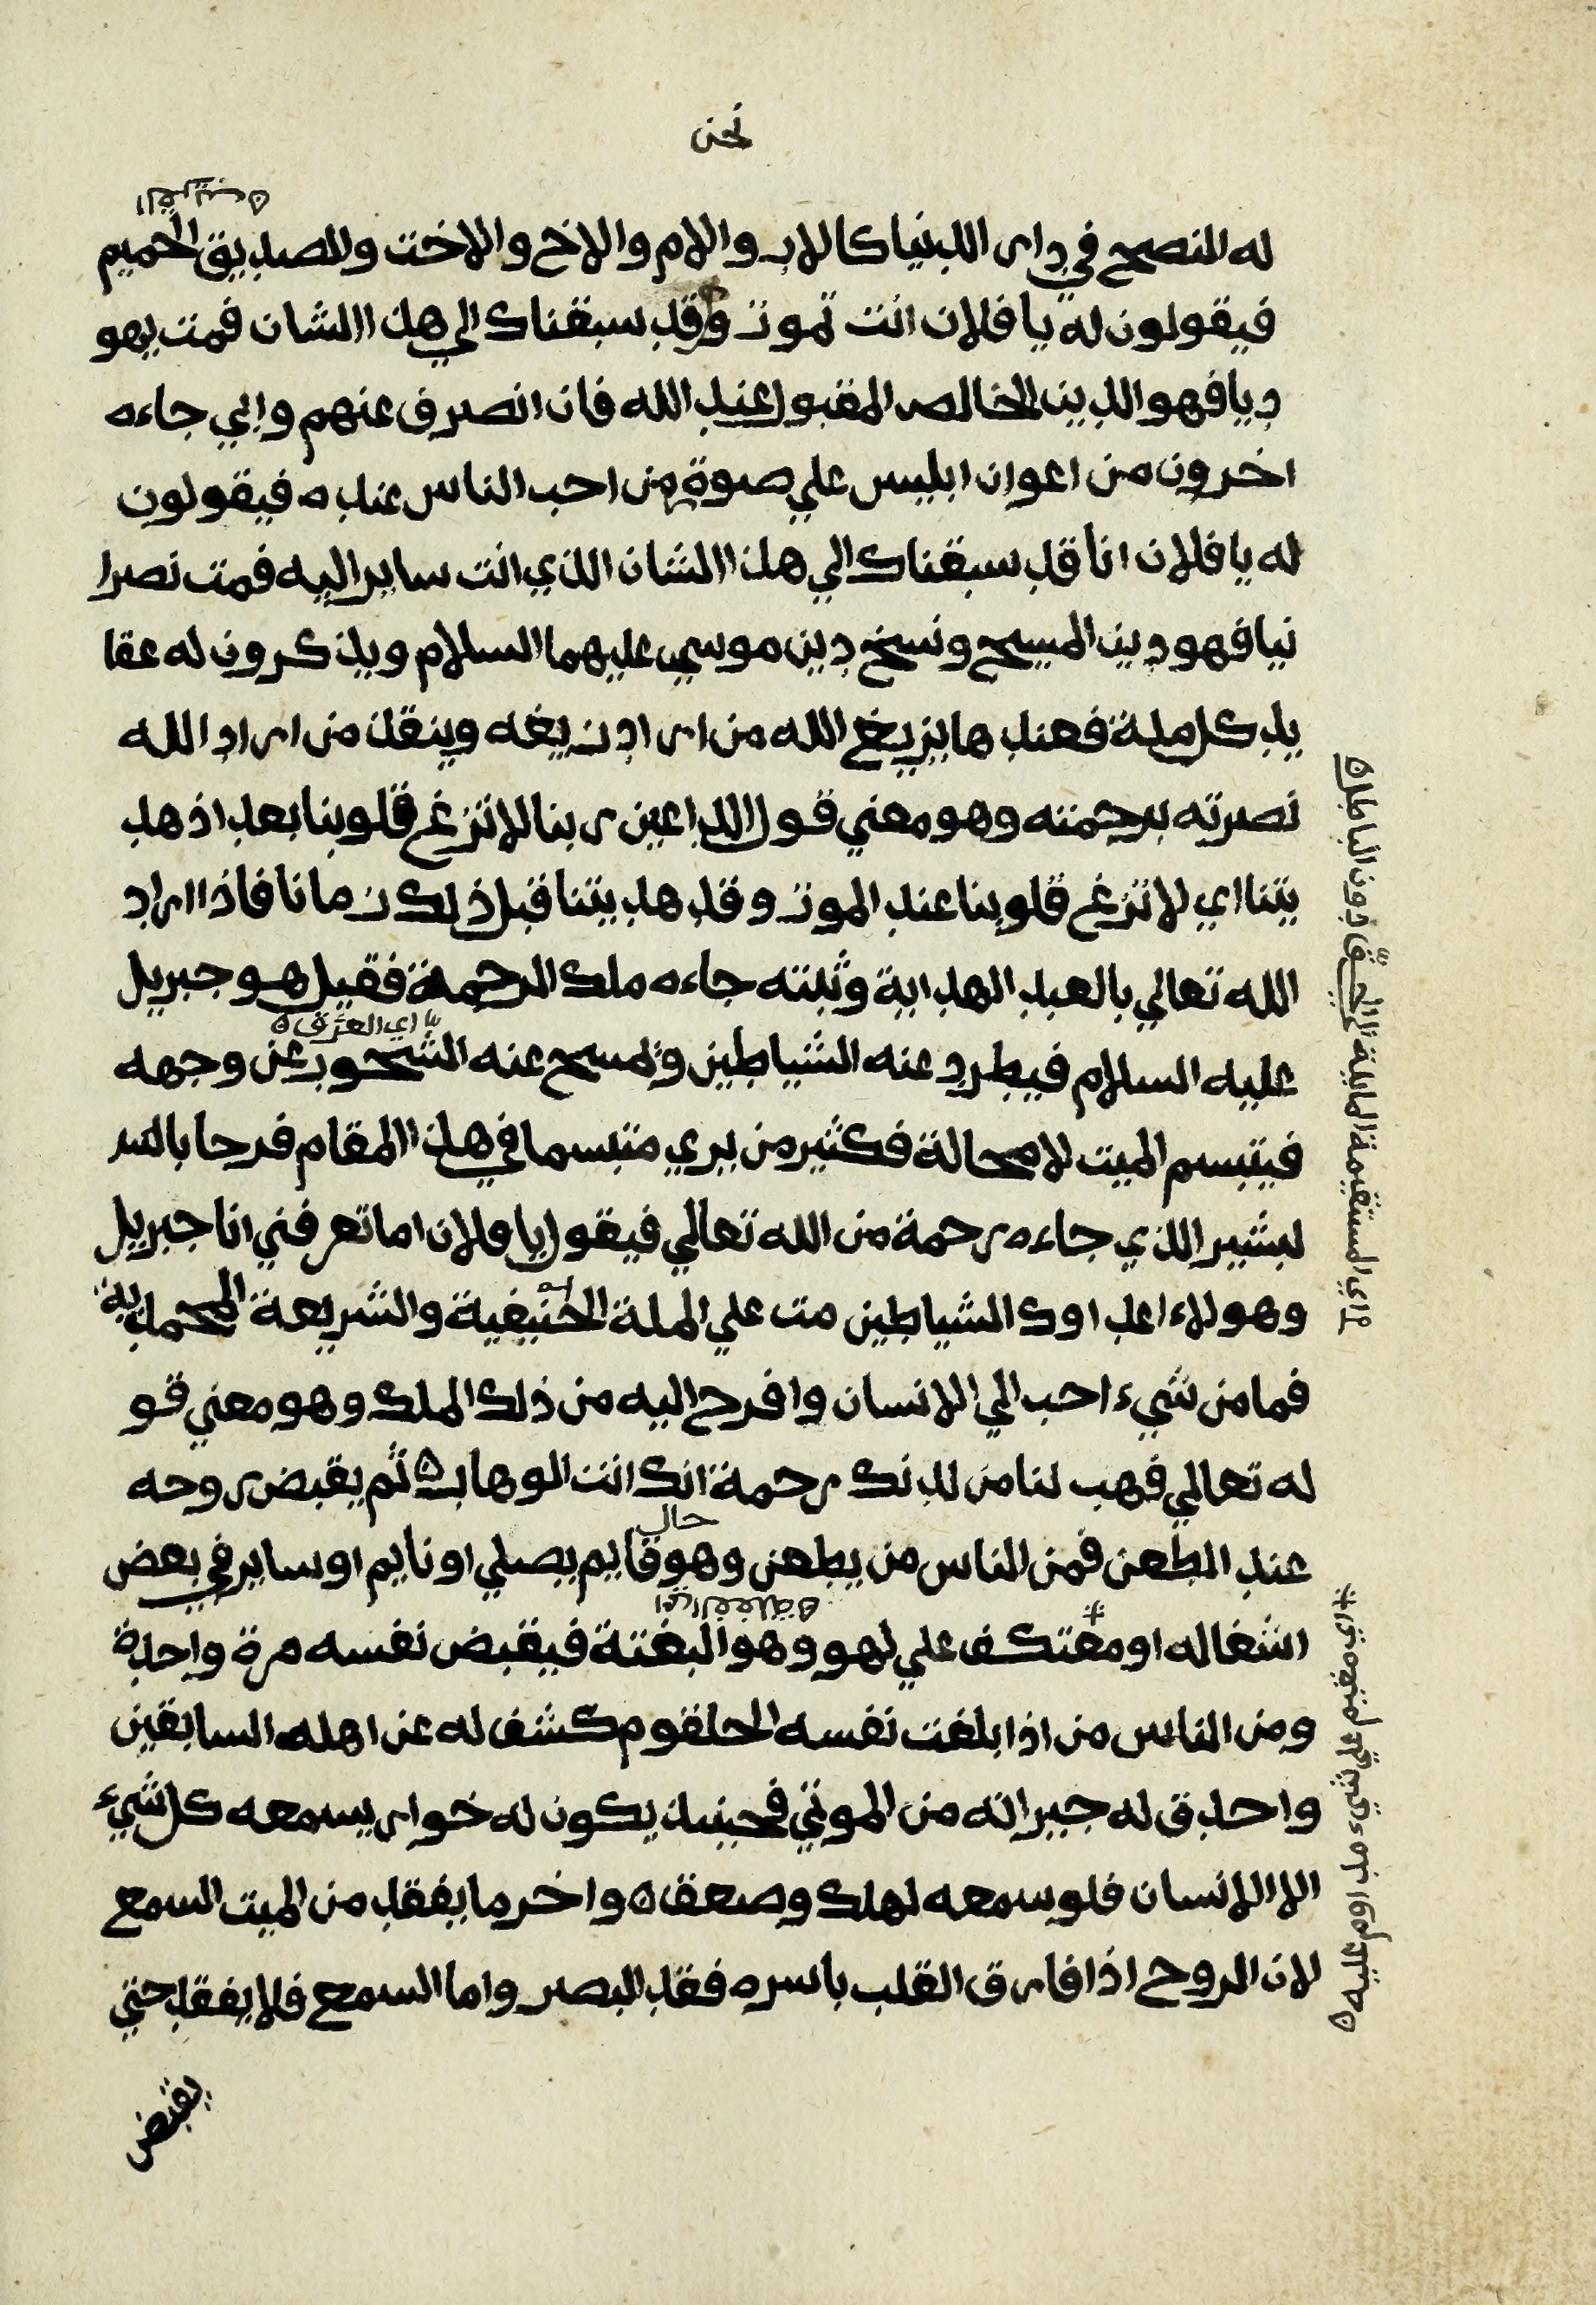 نحن
القريب ه
له النصح في دار الدنيا كالاب والام والاخ والاخت والصديق الحميم
فيقولون له يا فلان انت تموت وقد سبقناك الي هذا الشان فمت يهو
ديا فهو الدين الخالص المقبول عند الله فان انصرف عنهم وابي جاءه
اخرون من اعوان ابليس علي صوة من احب الناس عنده فيقولون
له يا فلان انا قد سبقناك الي هذا الشان الذي انت ساير اليه فمت نصرا
نيا فهو دين المسيح ونسخ دين موسي عليهما السلام ويذكرون له عقا
يد كل ملة فعندها يزيغ الله من اراد زيغه وينقذ من اراد الله
نصرته برحمته وهو معني قول الداعين ربنا لا تزغ قلوبنا بعد اذ هد
يتنا اي لا تزغ قلوبنا عند الموت وقد هديتنا قبل ذلك زمانا فاذا اراد
الله تعالي بالعبد الهداية وثبته جاءه ملك الرحمة فقيل هو جبريل
اي العرق ه
عليه السلام فيطرد عنه الشياطين ويمسح عنه الشحوب عن وجهه
فيتبسم الميت لا محالة فكثير من يري متبسما في هذا المقام فرحا بالـ
لبشير الذي جاءه رحمة من الله تعالي فيقول يا فلان اما تعرفني انا جبريل
وهولاء اعداوك الشياطين مت علي الملة الحنيفية والشريعة المحمدية
فما من شيء احب الي الانسان وافرح اليه من ذلك الملك وهو معني قو
له تعالي فهب لنا من لدنك رحمة انك انت الوهاب ه ثم يقبض روحه
حال
عند الطعن فمن الناس من يطعن وهو قايم يصلي او نايم او ساير في بعض
اي الغفلة ه
اشغاله او معتكف علي لهو وهو البغتة فيقبض نفسه مرة واحدة
ومن الناس من اذا بلغت نفسه الحلقوم كشف له عن اهله السابقين
واحدق له جيرانه من الموتي فحينيذ يكون له خوار يسمعه كل شيء
الا الانسان فلو سمعه لهلك وصعق ه واخر ما يفقد من الميت السمع
لان الروح اذا فارق القلب باسره فقد البصر واما السمع فلا يفقد حتي
يقبض
اي المستقيمة المايلة الي الحق دون الباطل ه